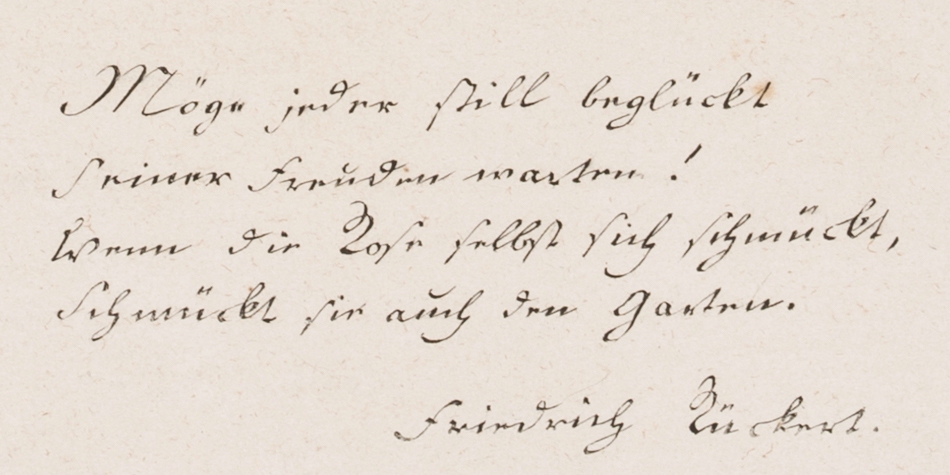 Möge jeder still beglückt
Seiner Freuden warten!
Wenn die Rose selbst sich schmückt,
Schmückt sie auch den Garten.
Friedrich Rückert.